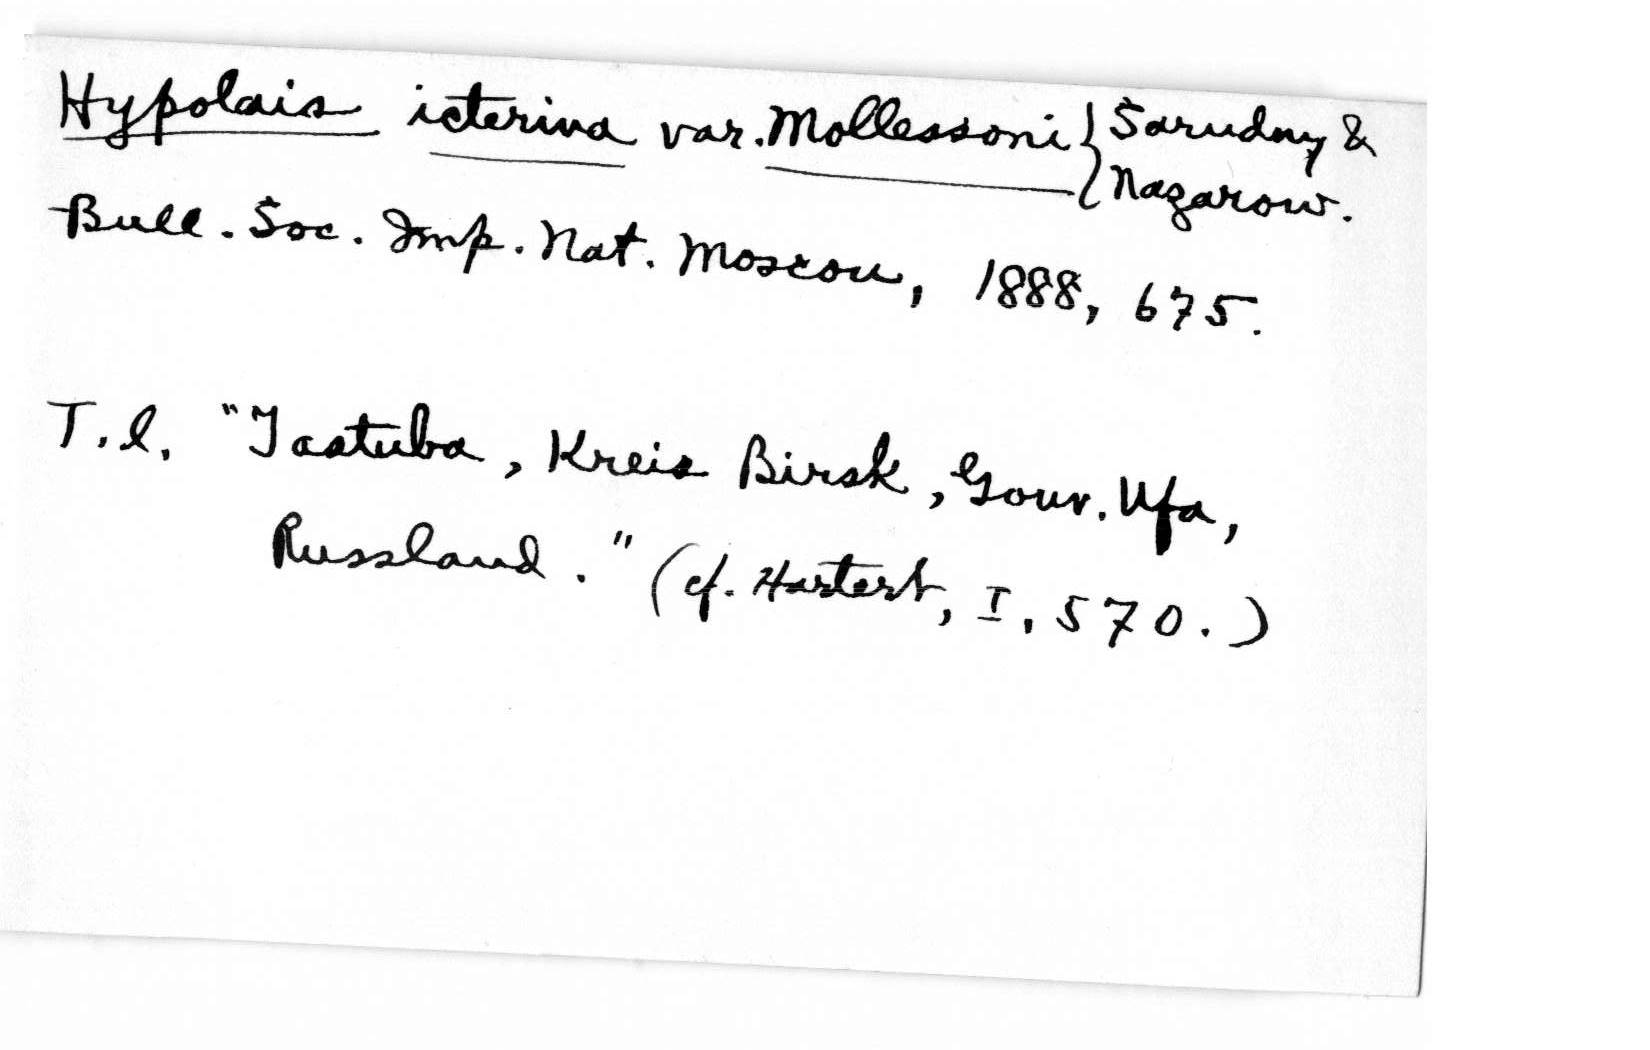 Hypolais icterina var. Mollessoni { Sarudny &
Nazarow.
Bull. Soc. Imp. Nat. Moscou, 1888, 675.
T.l. "Jastuba, Kreis Birsk, Gouv. Ufa,
Russland." (cf. Hartert, I, 570.)